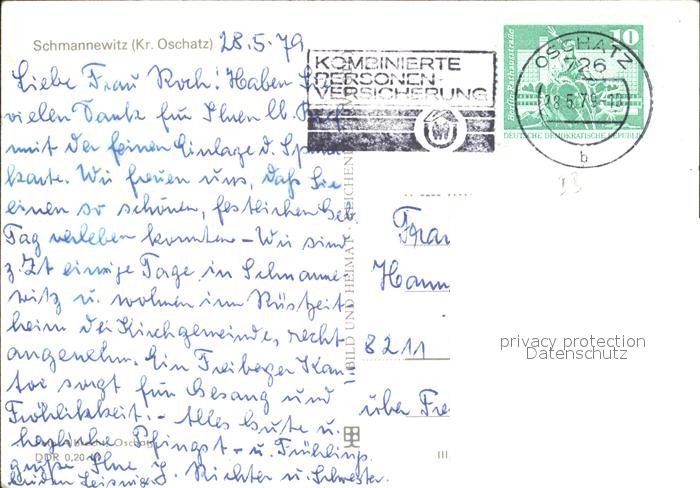 Schmannewitz (Kr. Oschatz) 28.5.79
Liebe Frau Koch! Haben S
vielen Dank für Ihren lb. Brief
mit der feinen Einlage d. Spar
karte. Wir freuen uns, daß Sie
einen so schönen, festlichen Geb
Tag verleben konnten – Wir sind
z. Zt einige Tage in Schmanne
witz u. wohnen im Rüstzeit
heim der Kirchgemeinde, recht
angenehm. Ein Freiberger Kan
tor sorgt für Gesang und
Fröhlichkeit. – Alles Gute u.
herzliche Pfingst- u. Frühlings
grüße Ihre J. Richter u. Schwester.
beiden
DDR 0,20
KOMBINIERTE
PERSONEN-
VERSICHERUNG
OSCHATZ
726
28.5.79
b
Berlin-Rathausstraße
10
DEUTSCHE DEMOKRATISCHE REPUBLIK
BILD UND HEIMAT REICHEN
Frau
Hann
8211
über Fre
III
privacy protection
Datenschutz